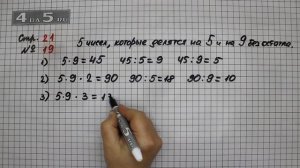 4 на 5.ru
Стр. 21
№ 19
5 чисел, которые делятся на 5 и на 9 без остатка.
1) 5·9=45 45:5=9 45:9=5
2) 5·9·2=90 90:5=18 90:9=10
3) 5·9·3=1